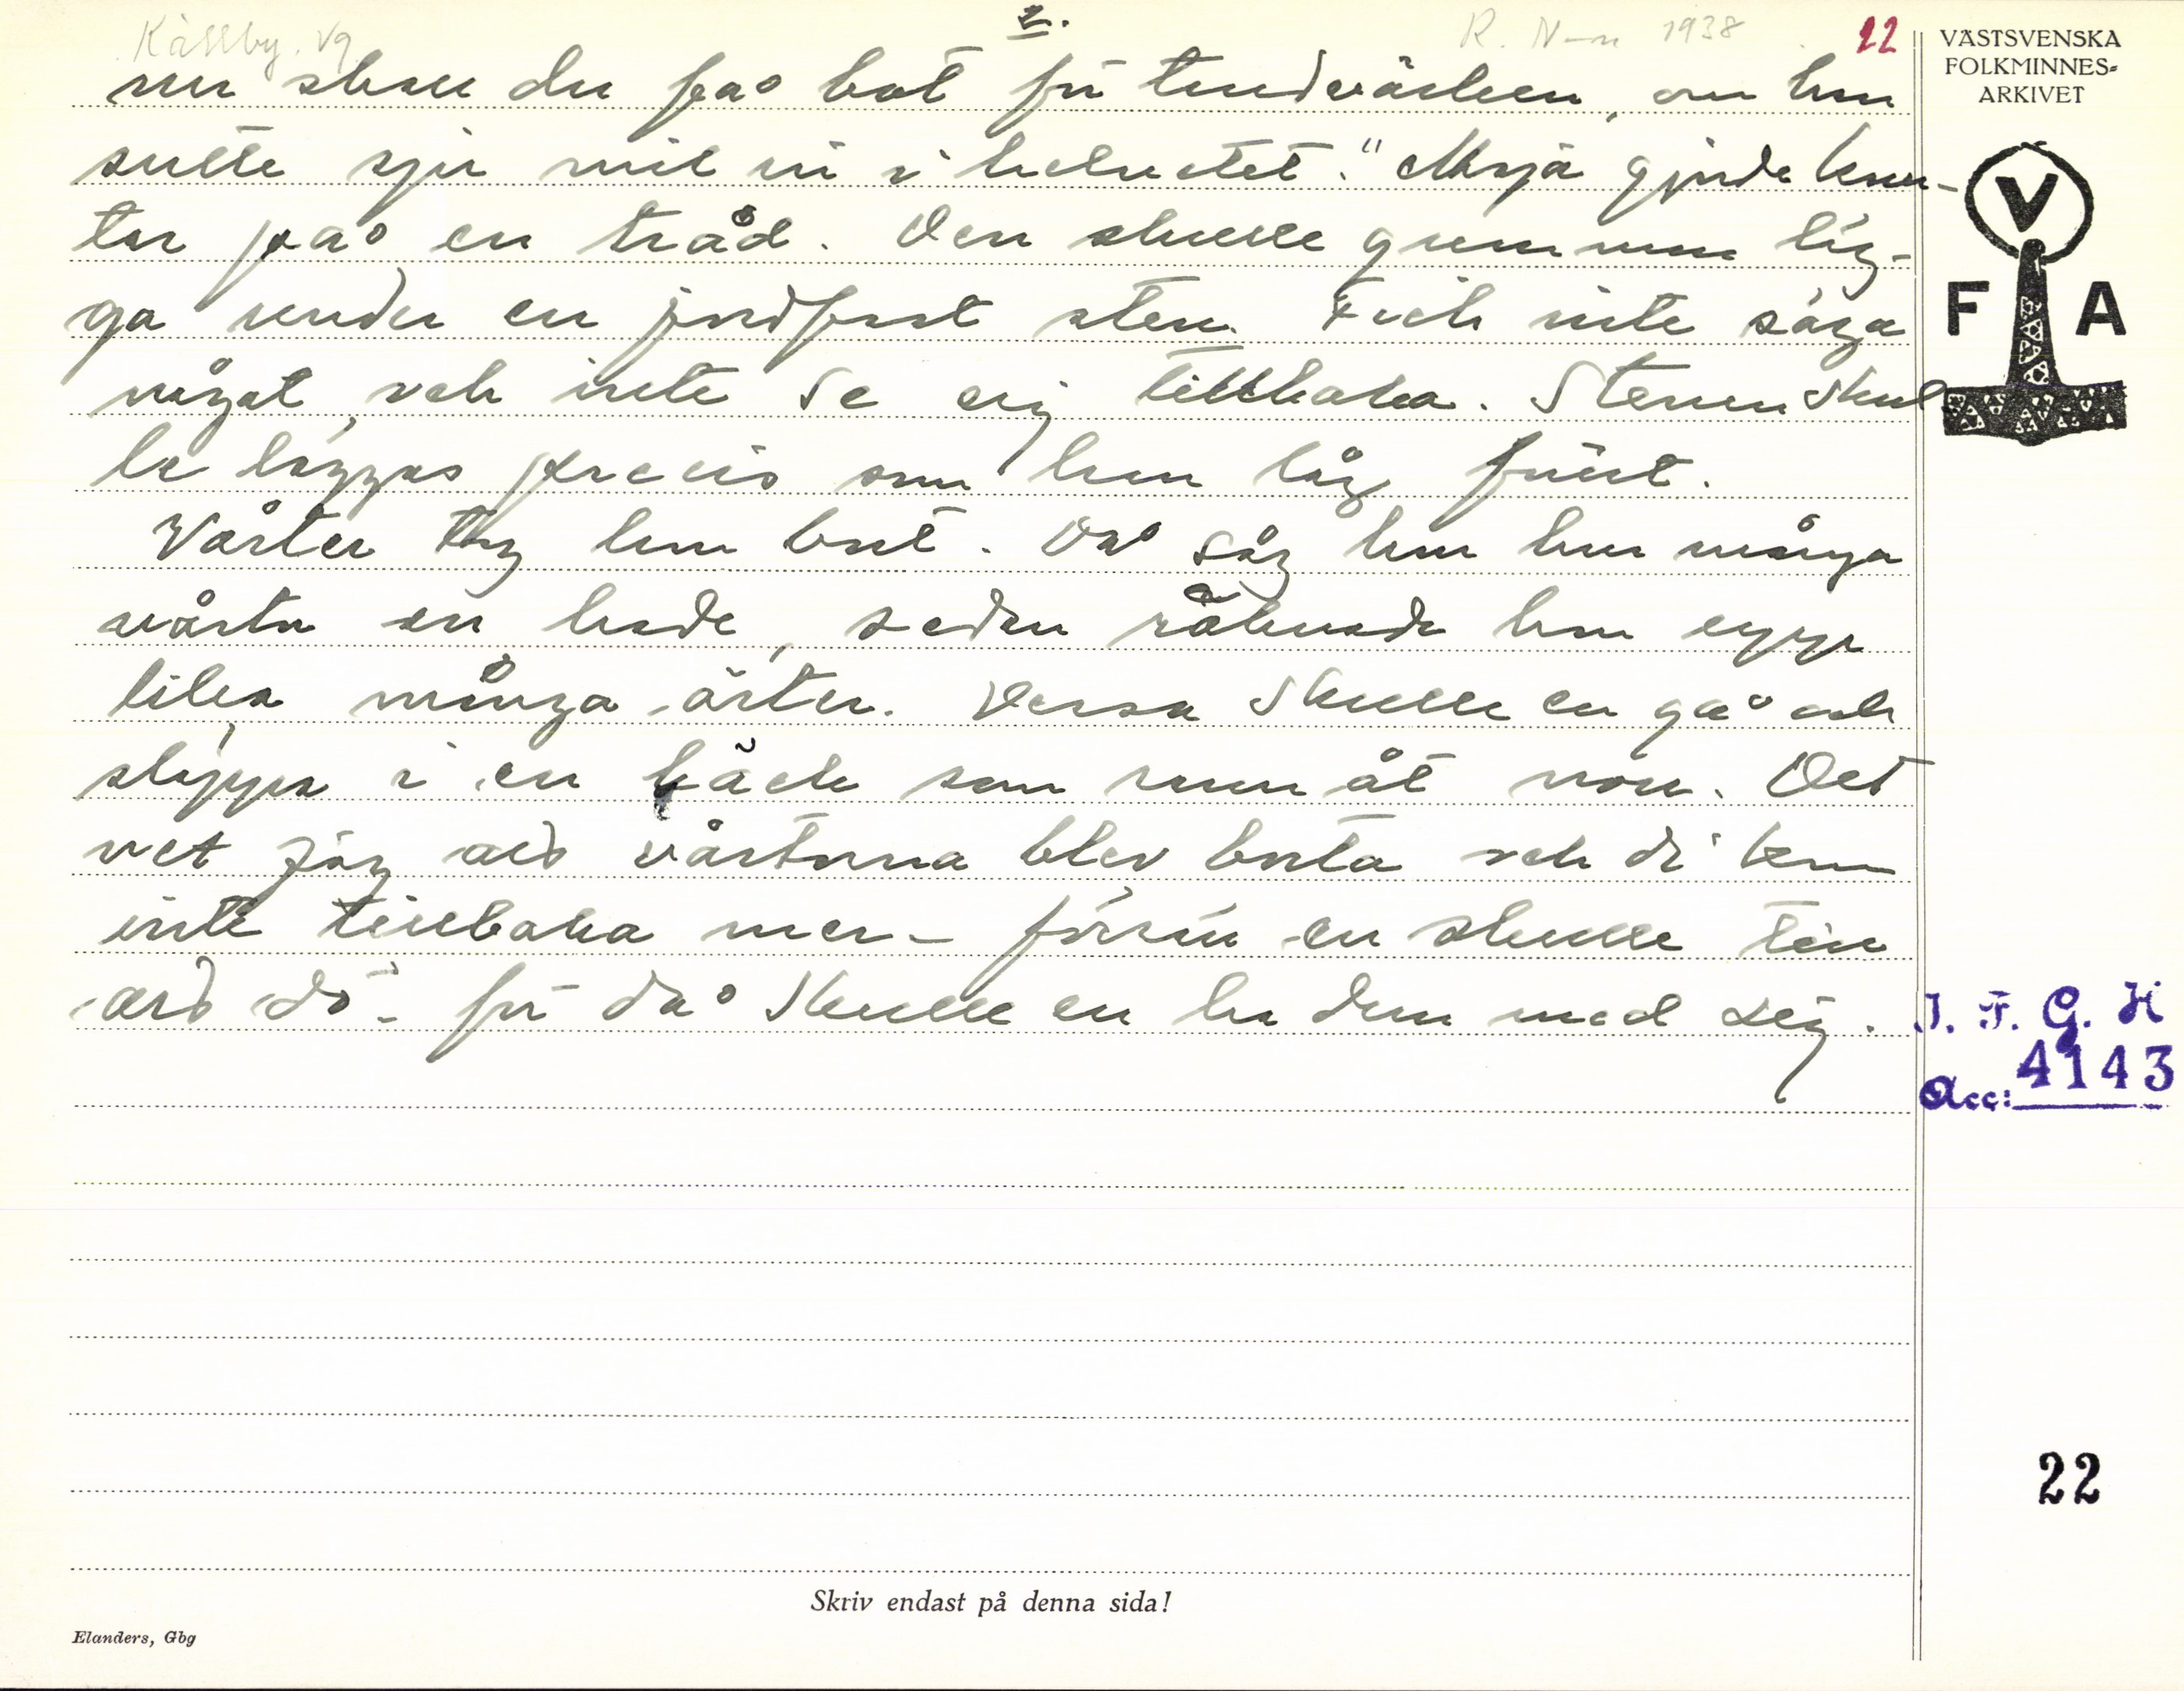 Källby. Vg
2.
R. N-n 1938
22
nu skall du få bot för tandvärken, om hon
sutte sju mil in i helvetet." Maja gjorde knu-
tar på en tråd. Den skulle gumman läg-
ga under en jordfast sten. Fick inte säga
något, och inte se sig tillbaka. Stenen skul
le läggas precis som han låg förut.
Vårter tog hon bort. Då såg hon hur många
vårtor en hade, sedan räknade hon upp
lika många ärter. Dessa skulle en gå och
släppa i en bäck som rann åt norr. Det
vet jag att vårtorna blev borta och di kom
inte tillbaka mer - förrän en skulle till
att dö - för då skulle en ha dem med sig.
VÄSTSVENSKA
FOLKMINNES-
ARKIVET
V
F A
I. F. G. H
Acc: 4143
22
Skriv endast på denna sida!
Elanders, Gbg